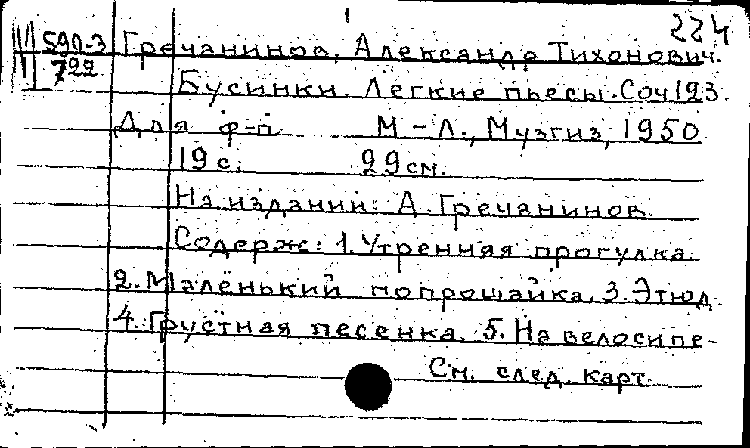 224
590-3
722
Гречанинов, Александр Тихонович.
Бусинки. Легкие пьесы. Соч 123.
Для ф-п. М-Л., Музгиз, 1950
19 с. 29 см.
На издании: А. Гречанинов
Содерж: 1. Утренняя прогулка
2. Маленький попрошайка. 3. Этюд
4. Грустная песенка. 5. На велосипе-
См. след. карт.